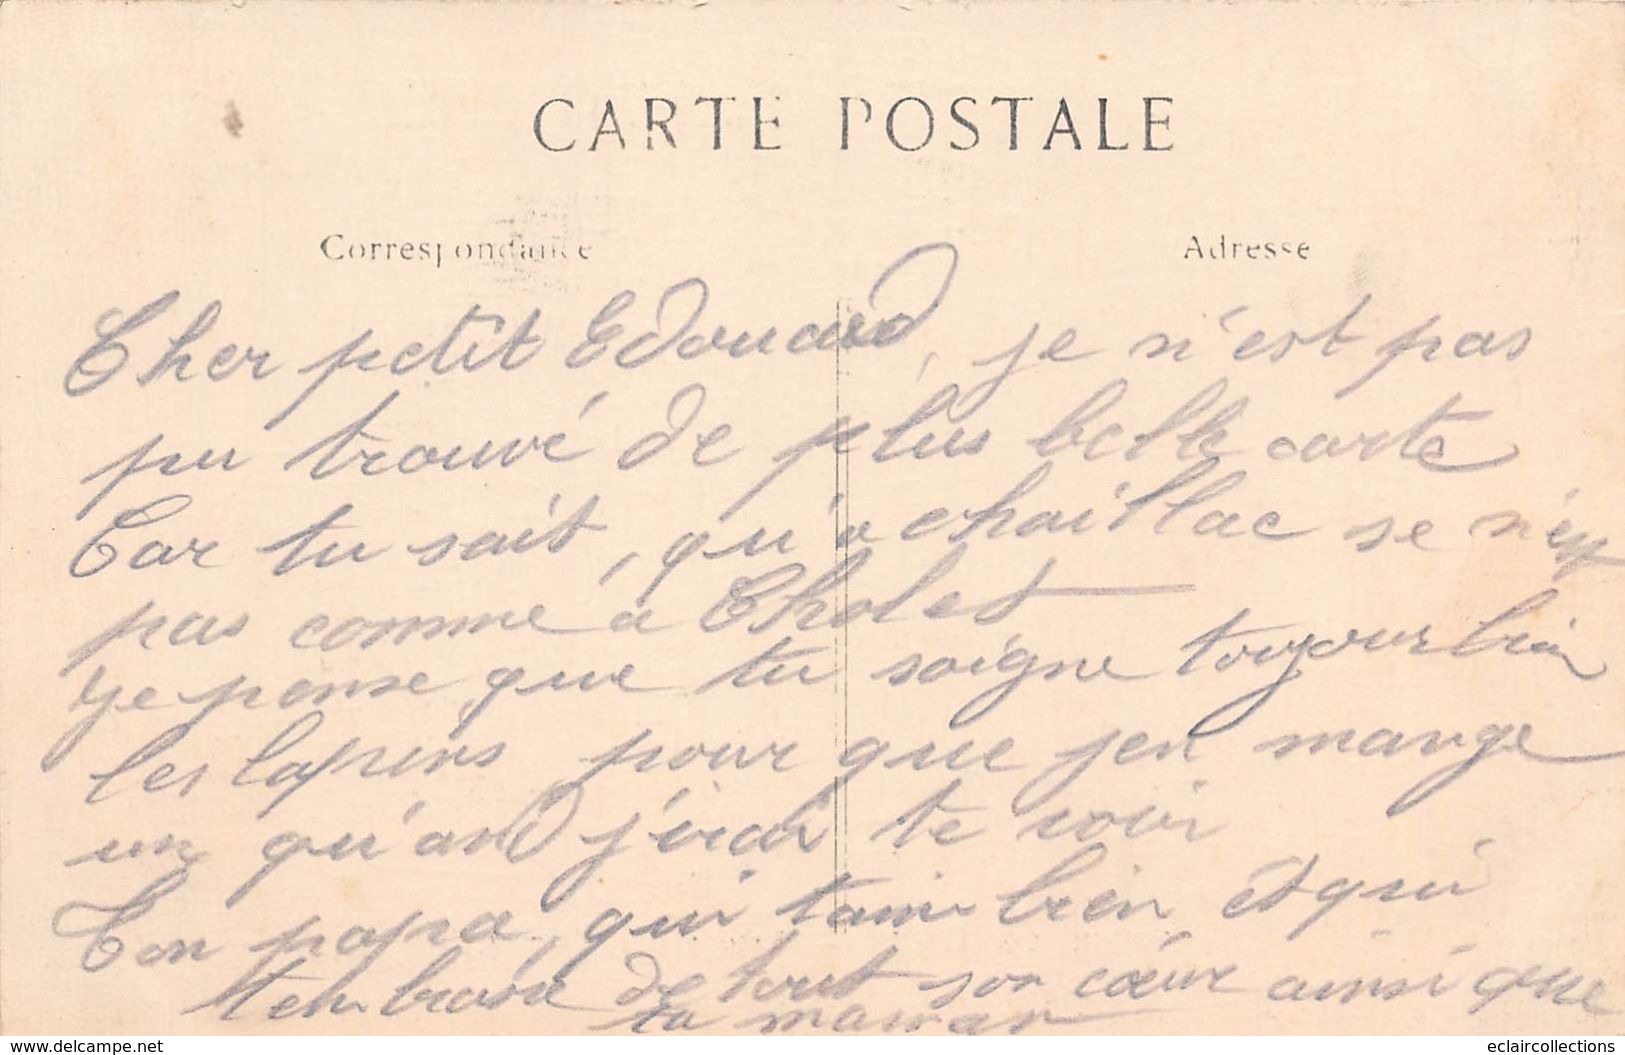 CARTE POSTALE
Correspondance
Adresse
Cher petit Edouard, je n'est pas
pu trouvé de plus belle carte
Car tu sait, qu'a chaillac se n'est
pas comme à Cholet
je pense que tu soigne toujours bien
les lapins pour que j'en mange
un qu'and j'irai te voir
Ton papa, qui t'aime bien et qui
t'embrasse de tout son cœur ainsi que
ta maman
www.delcampe.net
eclaircollections